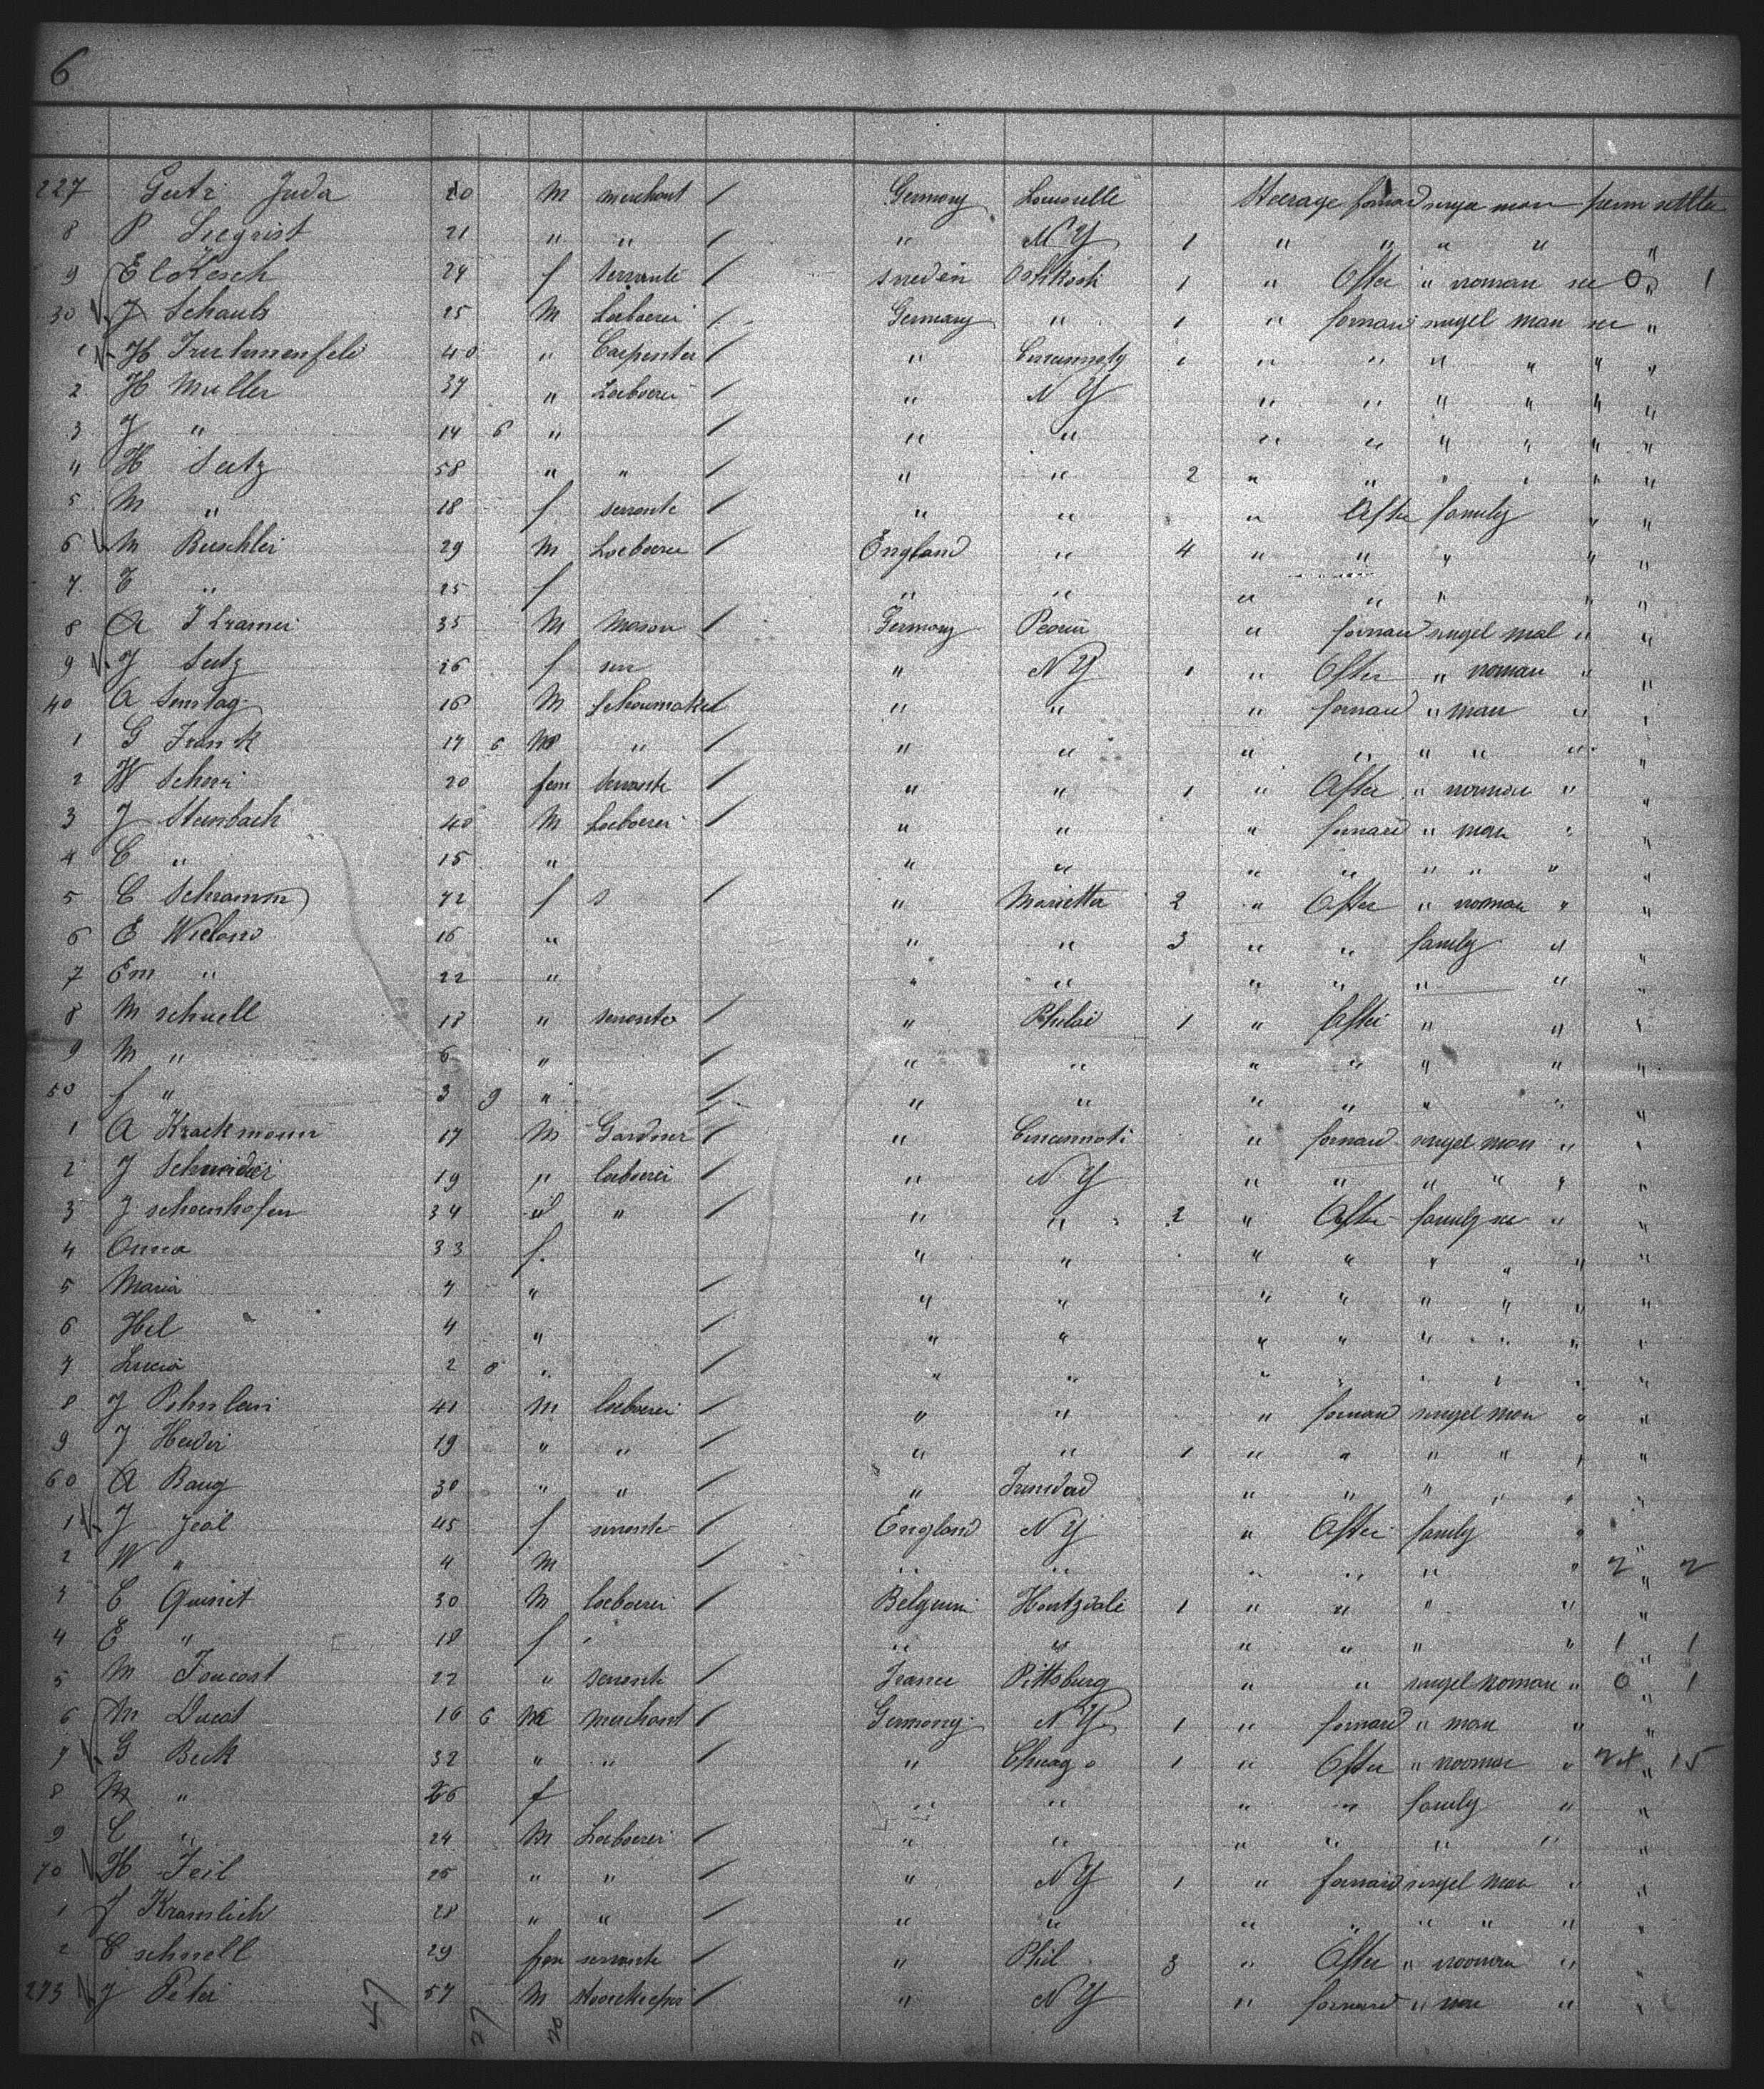 6
227 Gutz Juda 20 M merchant / Germany Louisville Steerage forward single man perm settler
8 P Siegrist 21 " " / " N Y 1 " " " " "
9 E l Kesch 24 f servante / Sweden Oshkosh 1 " After " woman " 0 " 1
30 J Schaub 25 M Laeboerer / Germany " 1 " forward singel man "
1 H 40 " Carpenter / " Cincinnaty 1 " " " " " "
2 H Muller 37 " Laeboerer / " N Y " " " " " "
3 J " 14 6 " / " " " " " " " "
4 H Seitz 58 " " / " " 2 " " " " " "
5 M " 18 f servante / " " " After family " "
6 M Buschler 29 M Laeboerer / England " 4 " " " " "
7 E " 25 f " " " " " " "
8 A Kramer 35 M Mason / Germany Peoria " forward singel mal " "
9 J Seitz 26 f ser / " N Y 1 " After " woman " "
40 A Sontag 16 M Schoumaker / " " " forward " man " "
1 G Frank 17 6 M " / " " " " " " " "
2 W Scherri 20 fem servante / " " 1 " After " woman " "
3 J Steinbach 40 M Laeboerer / " " " forward " man " "
4 C " 15 " " " " " " " " "
5 C Schramm 42 f s / " Marietta 2 " After " woman " "
6 E Wieland 16 " " " 3 " " family " "
7 Em " 22 " " " " " " " "
8 M schnell 18 " servante / " Philad 1 " After " " "
9 M " 6 " / " " " " " " "
50 f " 3 9 " / " " " " " " "
1 A Krackmann 17 M Gardner / " Cincinnati " forward singel man " "
2 J Schneider 19 " laeboerer / " N Y " " " " " "
3 J schoenhofen 34 " " / " " 2 " After family " "
4 Anna 33 f. " " " " " " " "
5 Maria 7 " / " " " " " " " "
6 Hel 4 " / " " " " " " " "
7 Lucia 2 8 " / " " " " " " " "
8 J 41 M laeboerer / " " " forward singel man " "
9 J Heider 19 " " / " " 1 " " " " " "
60 A Baug 30 " " / " Trinidad " " " " " "
1 J Jeal 45 f servante / England N Y " After family " "
2 W " 4 M / " " " " " " 2 " 2
3 C Quinet 30 M laeboerer / Belgium Houtzdale 1 " " " " "
4 E " 18 f " " " " " " " 1 " 1
5 M Foucart 22 " servante / France Pittsburg " " singel woman " 0 " 1
6 M Ducat 16 6 M merchant / Germany N Y 1 " forward " man " "
7 G Beck 32 " " / " Chicago 1 " After " wooman " 24 " 15
8 M " 26 f " " " " family " "
9 C " 24 M Laeboerer / " " " " " " "
70 H Feil 25 " " / " N Y 1 " forward singel man " "
1 J Kramlich 28 " " / " " " " " " " "
2 C schnell 29 fem servante / " Phil 3 " After " wooman " "
273 J Peter 57 M / " N Y " forward " man " "
47 27 20